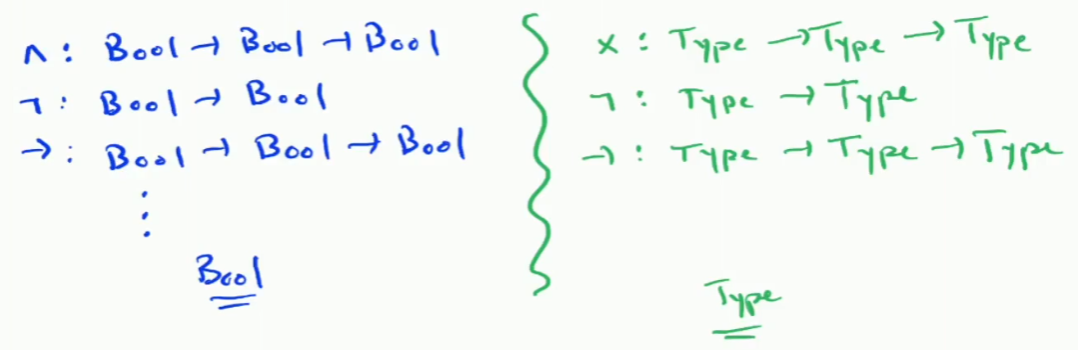 ∧ : Bool → Bool → Bool
¬ : Bool → Bool
→ : Bool → Bool → Bool
⋮
Bool
× : Type → Type → Type
¬ : Type → Type
→ : Type → Type → Type
Type